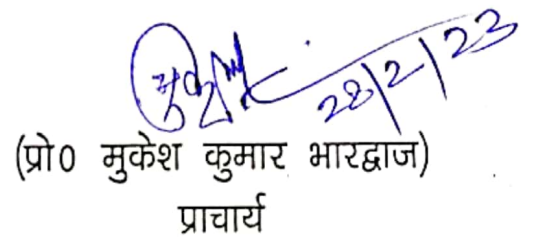 मुकेश 28/2/23
(प्रो0 मुकेश कुमार भारद्वाज)
प्राचार्य